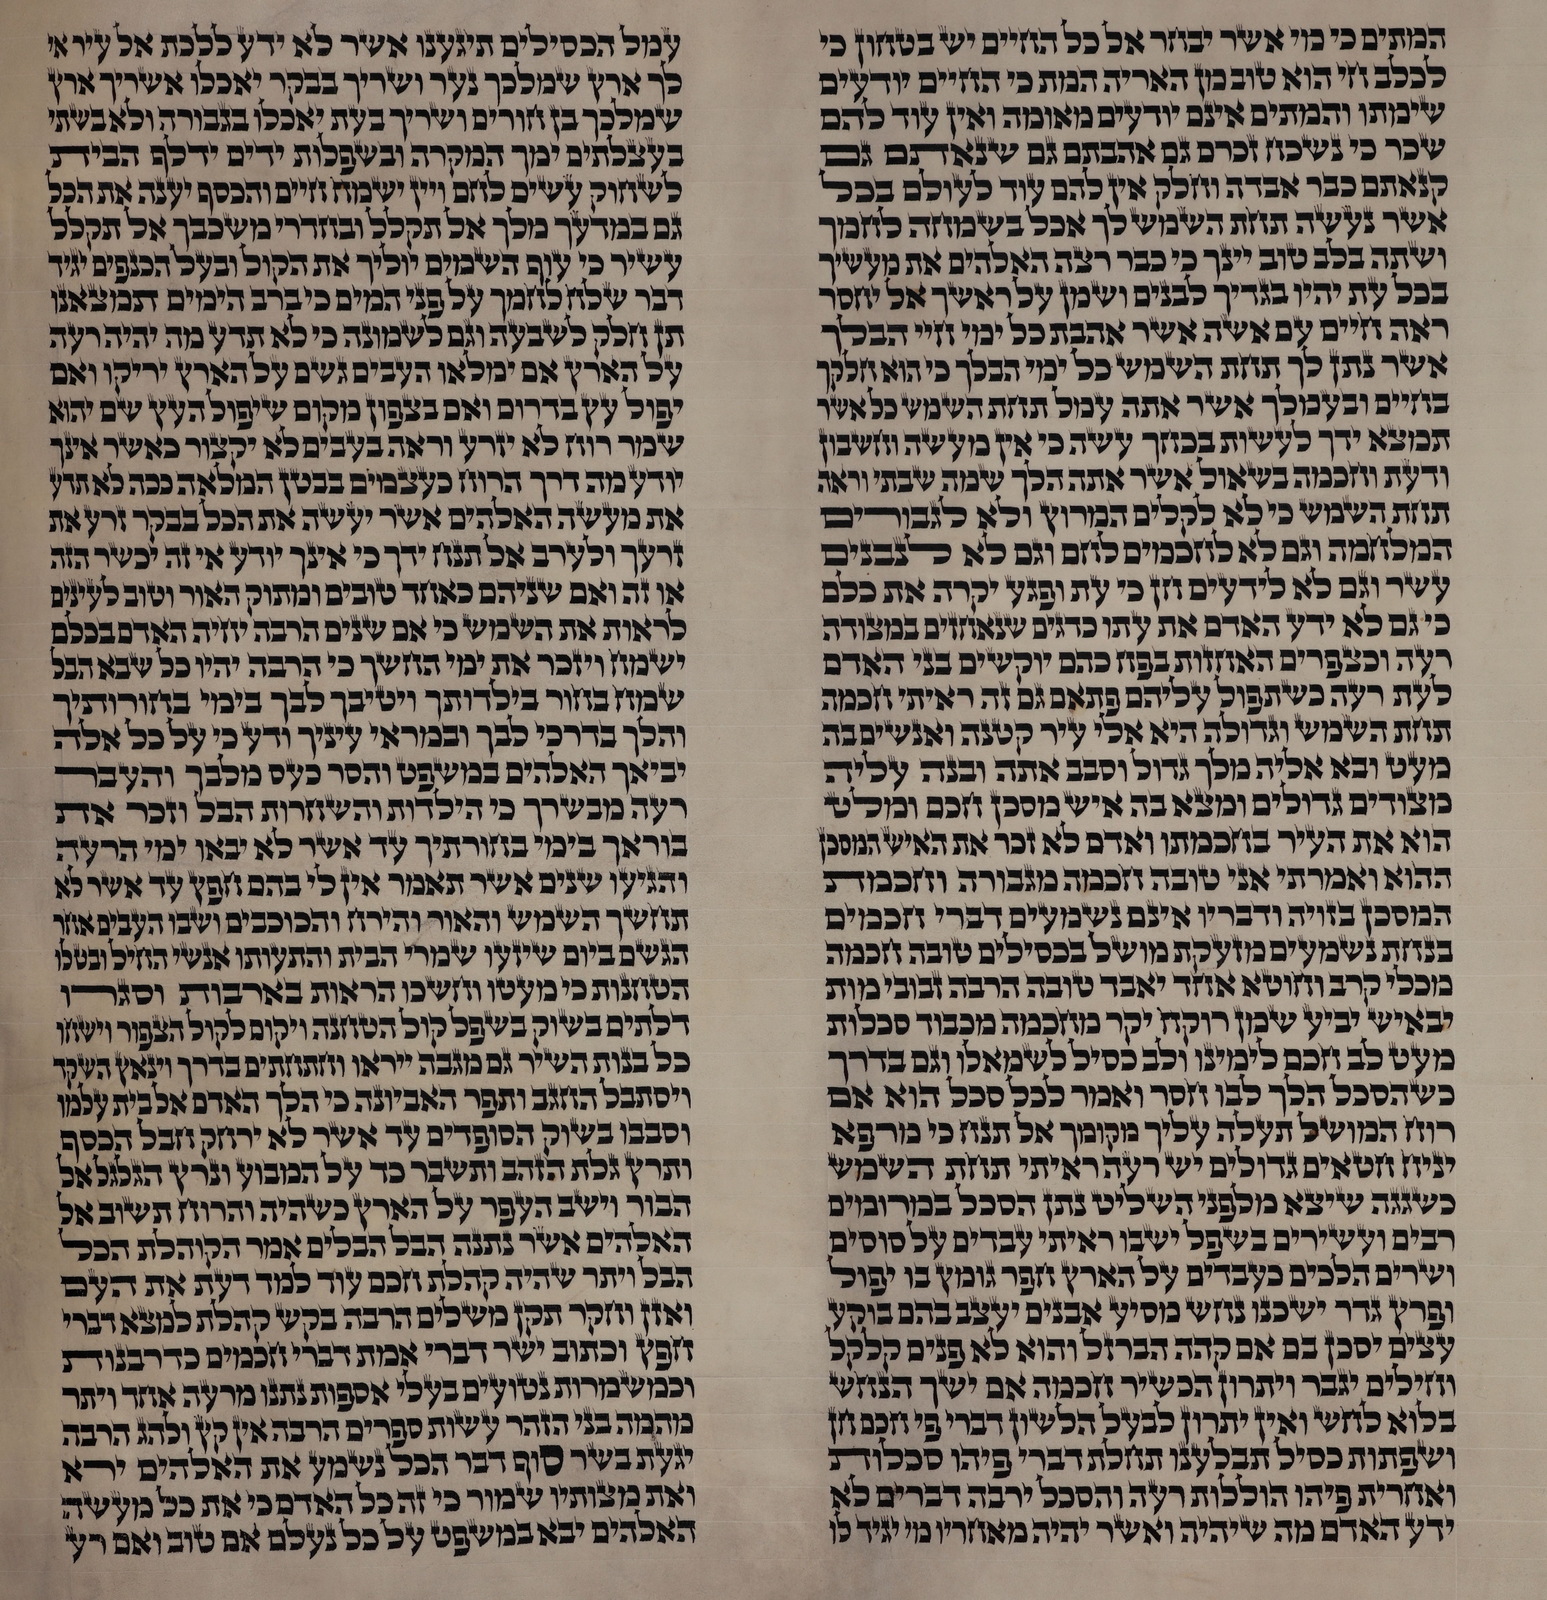 המתים כי מוי אשר יבחר אל כל החיים יש בטחון כי
לכלב חי הוא טוב מן האריה המת כי החיים יודעים
שימתו והמתים אינם יודעים מאומה ואין עוד להם
שכר כי נשכח זכרם גם אהבתם גם שנאתם גם
קנאתם כבר אבדה וחלק אין להם עוד לעולם בכל
אשר נעשה תחת השמש לך אכל בשמחה לחמך
ושתה בלב טוב יינך כי כבר רצה האלהים את מעשיך
בכל עת יהיו בגדיך לבנים ושמן על ראשך אל יחסר
ראה חיים עם אשה אשר אהבת כל ימי חיי הבלך
אשר נתן לך תחת השמש כל ימי הבלך כי הוא חלקך
בחיים ובעמלך אשר אתה עמל תחת השמש כל אשר
תמצא ידך לעשות בכחך עשה כי אין מעשה וחשבון
ודעת וחכמה בשאול אשר אתה הלך שמה שבתי וראה
תחת השמש כי לא לקלים המרוץ ולא לגבורים
המלחמה וגם לא לחכמים לחם וגם לא לנבנים
עשר וגם לא לידעים חן כי עת ופגע יקרה את כלם
כי גם לא ידע האדם את עתו כדגים שנאחזים במצודה
רעה וכצפרים האחזות בפח כהם יוקשים בני האדם
לעת רעה כשתפול עליהם פתאם גם זה ראיתי חכמה
תחת השמש וגדולה היא אלי עיר קטנה ואנשים בה
מעט ובא אליה מלך גדול וסבב אתה ובנה עליה
מצודים גדולים ומצא בה איש מסכן חכם ומלט
הוא את העיר בחכמתו ואדם לא זכר את האיש המסכן
ההוא ואמרתי אני טובה חכמה מגבורה וחכמת
המסכן בזויה ודבריו אינם נשמעים דברי חכמים
בנחת נשמעים מזעקת מושל בכסילים טובה חכמה
מכלי קרב וחוטא אחד יאבד טובה הרבה זבובי מות
יבאיש יביע שמן רוקח יקר מחכמה מכבוד סכלות
מעט לב חכם לימינו ולב כסיל לשמאלו וגם בדרך
כשהסכל הלך לבו חסר ואמר לכל סכל הוא אם
רוח המושל תעלה עליך מקומך אל תנח כי מרפא
יניח חטאים גדולים יש רעה ראיתי תחת השמש
כשגגה שיצא מלפני השליט נתן הסכל במרומים
רבים ועשירים בשפל ישבו ראיתי עבדים על סוסים
ושרים הלכים כעבדים על הארץ חפר גומץ בו יפול
ופרץ גדר ישכנו נחש מסיע אבנים יעצב בהם בוקע
עצים יסכן בם אם קהה הברזל והוא לא פנים קלקל
וחילים יגבר ויתרון הכשיר חכמה אם ישך הנחש
בלוא לחש ואין יתרון לבעל הלשון דברי פי חכם חן
ושפתות כסיל תבלענו תחלת דברי פיהו סכלות
ואחרית פיהו הוללות רעה והסכל ירבה דברים לא
ידע האדם מה שיהיה ואשר יהיה מאחריו מי יגיד לו
עמל הכסילים תיגענו אשר לא ידע ללכת אל עיר אי
לך ארץ שמלכך נער ושריך בבקר יאכלו אשריך ארץ
שמלכך בן חורים ושריך בעת יאכלו בגבורה ולא בשתי
בעצלתים ימך המקרה ובשפלות ידים ידלף הבית
לשחוק עשים לחם ויין ישמח חיים והכסף יענה את הכל
גם במדעך מלך אל תקלל ובחדרי משכבך אל תקלל
עשיר כי עוף השמים יוליך את הקול ובעל הכנפים יגיד
דבר שלח לחמך על פני המים כי ברב הימים תמצאנו
תן חלק לשבעה וגם לשמונה כי לא תדע מה יהיה רעה
על הארץ אם ימלאו העבים גשם על הארץ יריקו ואם
יפול עץ בדרום ואם בצפון מקום שיפול העץ שם יהוא
שמר רוח לא יזרע וראה בעבים לא יקצור כאשר אינך
יודע מה דרך הרוח כעצמים בבטן המלאה ככה לא תדע
את מעשה האלהים אשר יעשה את הכל בבקר זרע את
זרעך ולערב אל תנח ידך כי אינך יודע אי זה יכשר הזה
או זה ואם שניהם כאחד טובים ומתוק האור וטוב לעינים
לראות את השמש כי אם שנים הרבה יחיה האדם בכלם
ישמח ויזכר את ימי החשך כי הרבה יהיו כל שבא הבל
שמח בחור בילדותך ויטיבך לבך בימי בחורותיך
והלך בדרכי לבך ובמראי עיניך ודע כי על כל אלה
יביאך האלהים במשפט והסר כעס מלבך והעבר
רעה מבשרך כי הילדות והשחרות הבל וזכר את
בוראך בימי בחורתיך עד אשר לא יבאו ימי הרעה
והגיעו שנים אשר תאמר אין לי בהם חפץ עד אשר לא
תחשך השמש והאור והירח והכוכבים ושבו העבים אחר
הגשם ביום שיזעו שמרי הבית והתעותו אנשי החיל ובטלו
הטחנות כי מעטו וחשכו הראות בארבות וסגרו
דלתים בשוק בשפל קול הטחנה ויקום לקול הצפור וישחו
כל בנות השיר גם מגבה ייראו וחתחתים בדרך וינאץ השקד
ויסתבל החגב ותפר האביונה כי הלך האדם אל בית עלמו
וסבבו בשוק הסופדים עד אשר לא ירחק חבל הכסף
ותרץ גלת הזהב ותשבר כד על המבוע ונרץ הגלגל אל
הבור וישב העפר על הארץ כשהיה והרוח תשוב אל
האלהים אשר נתנה הבל הבלים אמר הקוהלת הכל
הבל ויתר שהיה קהלת חכם עוד למד דעת את העם
ואזן וחקר תקן משלים הרבה בקש קהלת למצא דברי
חפץ וכתוב ישר דברי אמת דברי חכמים כדרבנות
וכמשמרות נטועים בעלי אספות נתנו מרעה אחד ויתר
מהמה בני הזהר עשות ספרים הרבה אין קץ ולהג הרבה
יגעת בשר סוף דבר הכל נשמע את האלהים ירא
ואת מצותיו שמור כי זה כל האדם כי את כל מעשה
האלהים יבא במשפט על כל נעלם אם טוב ואם רע